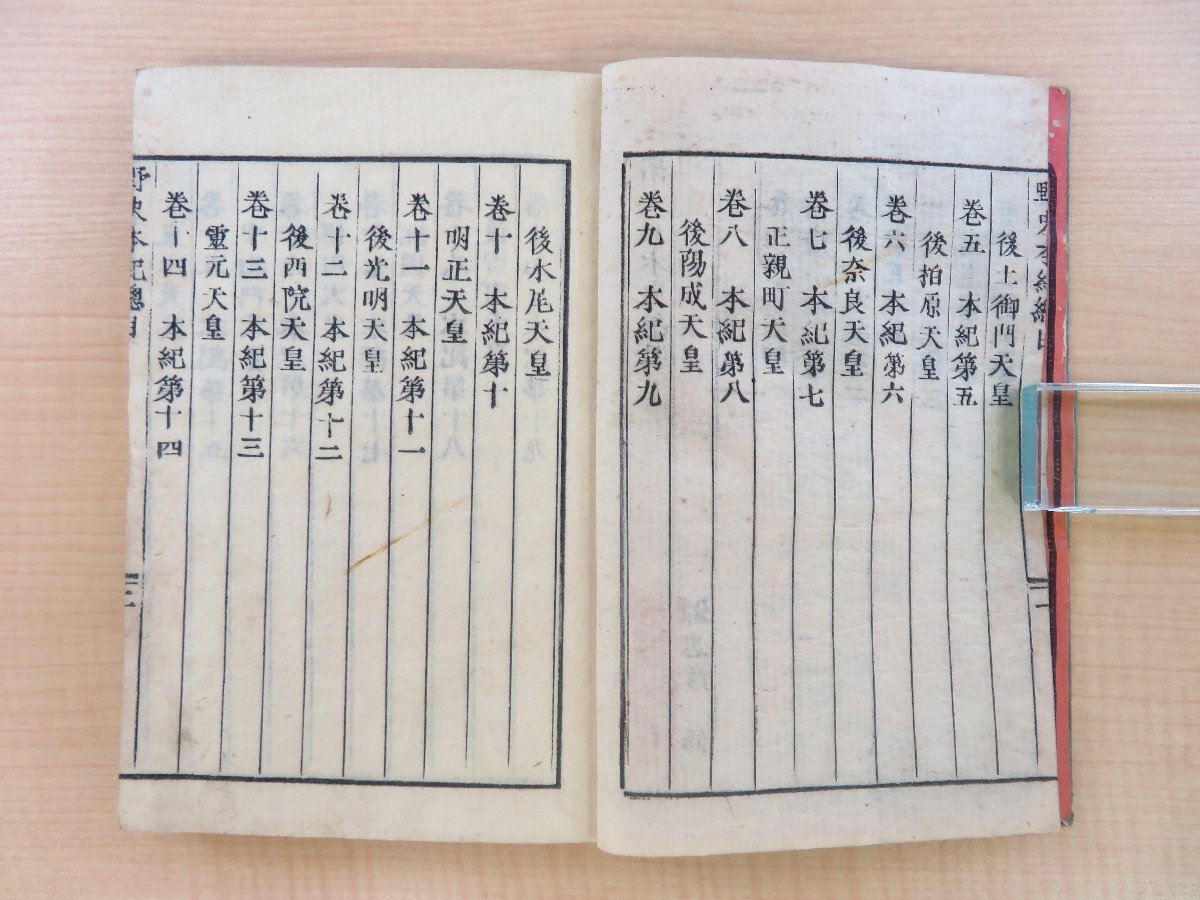 野史本紀總目
後土御門天皇
卷五 本紀第五
後柏原天皇
卷六 本紀第六
後奈良天皇
卷七 本紀第七
正親町天皇
卷八 本紀第八
後陽成天皇
卷九 本紀第九
後水尾天皇
卷十 本紀第十
明正天皇
卷十一 本紀第十一
後光明天皇
卷十二 本紀第十二
後西院天皇
卷十三 本紀第十三
靈元天皇
卷十四 本紀第十四
野史本紀總目